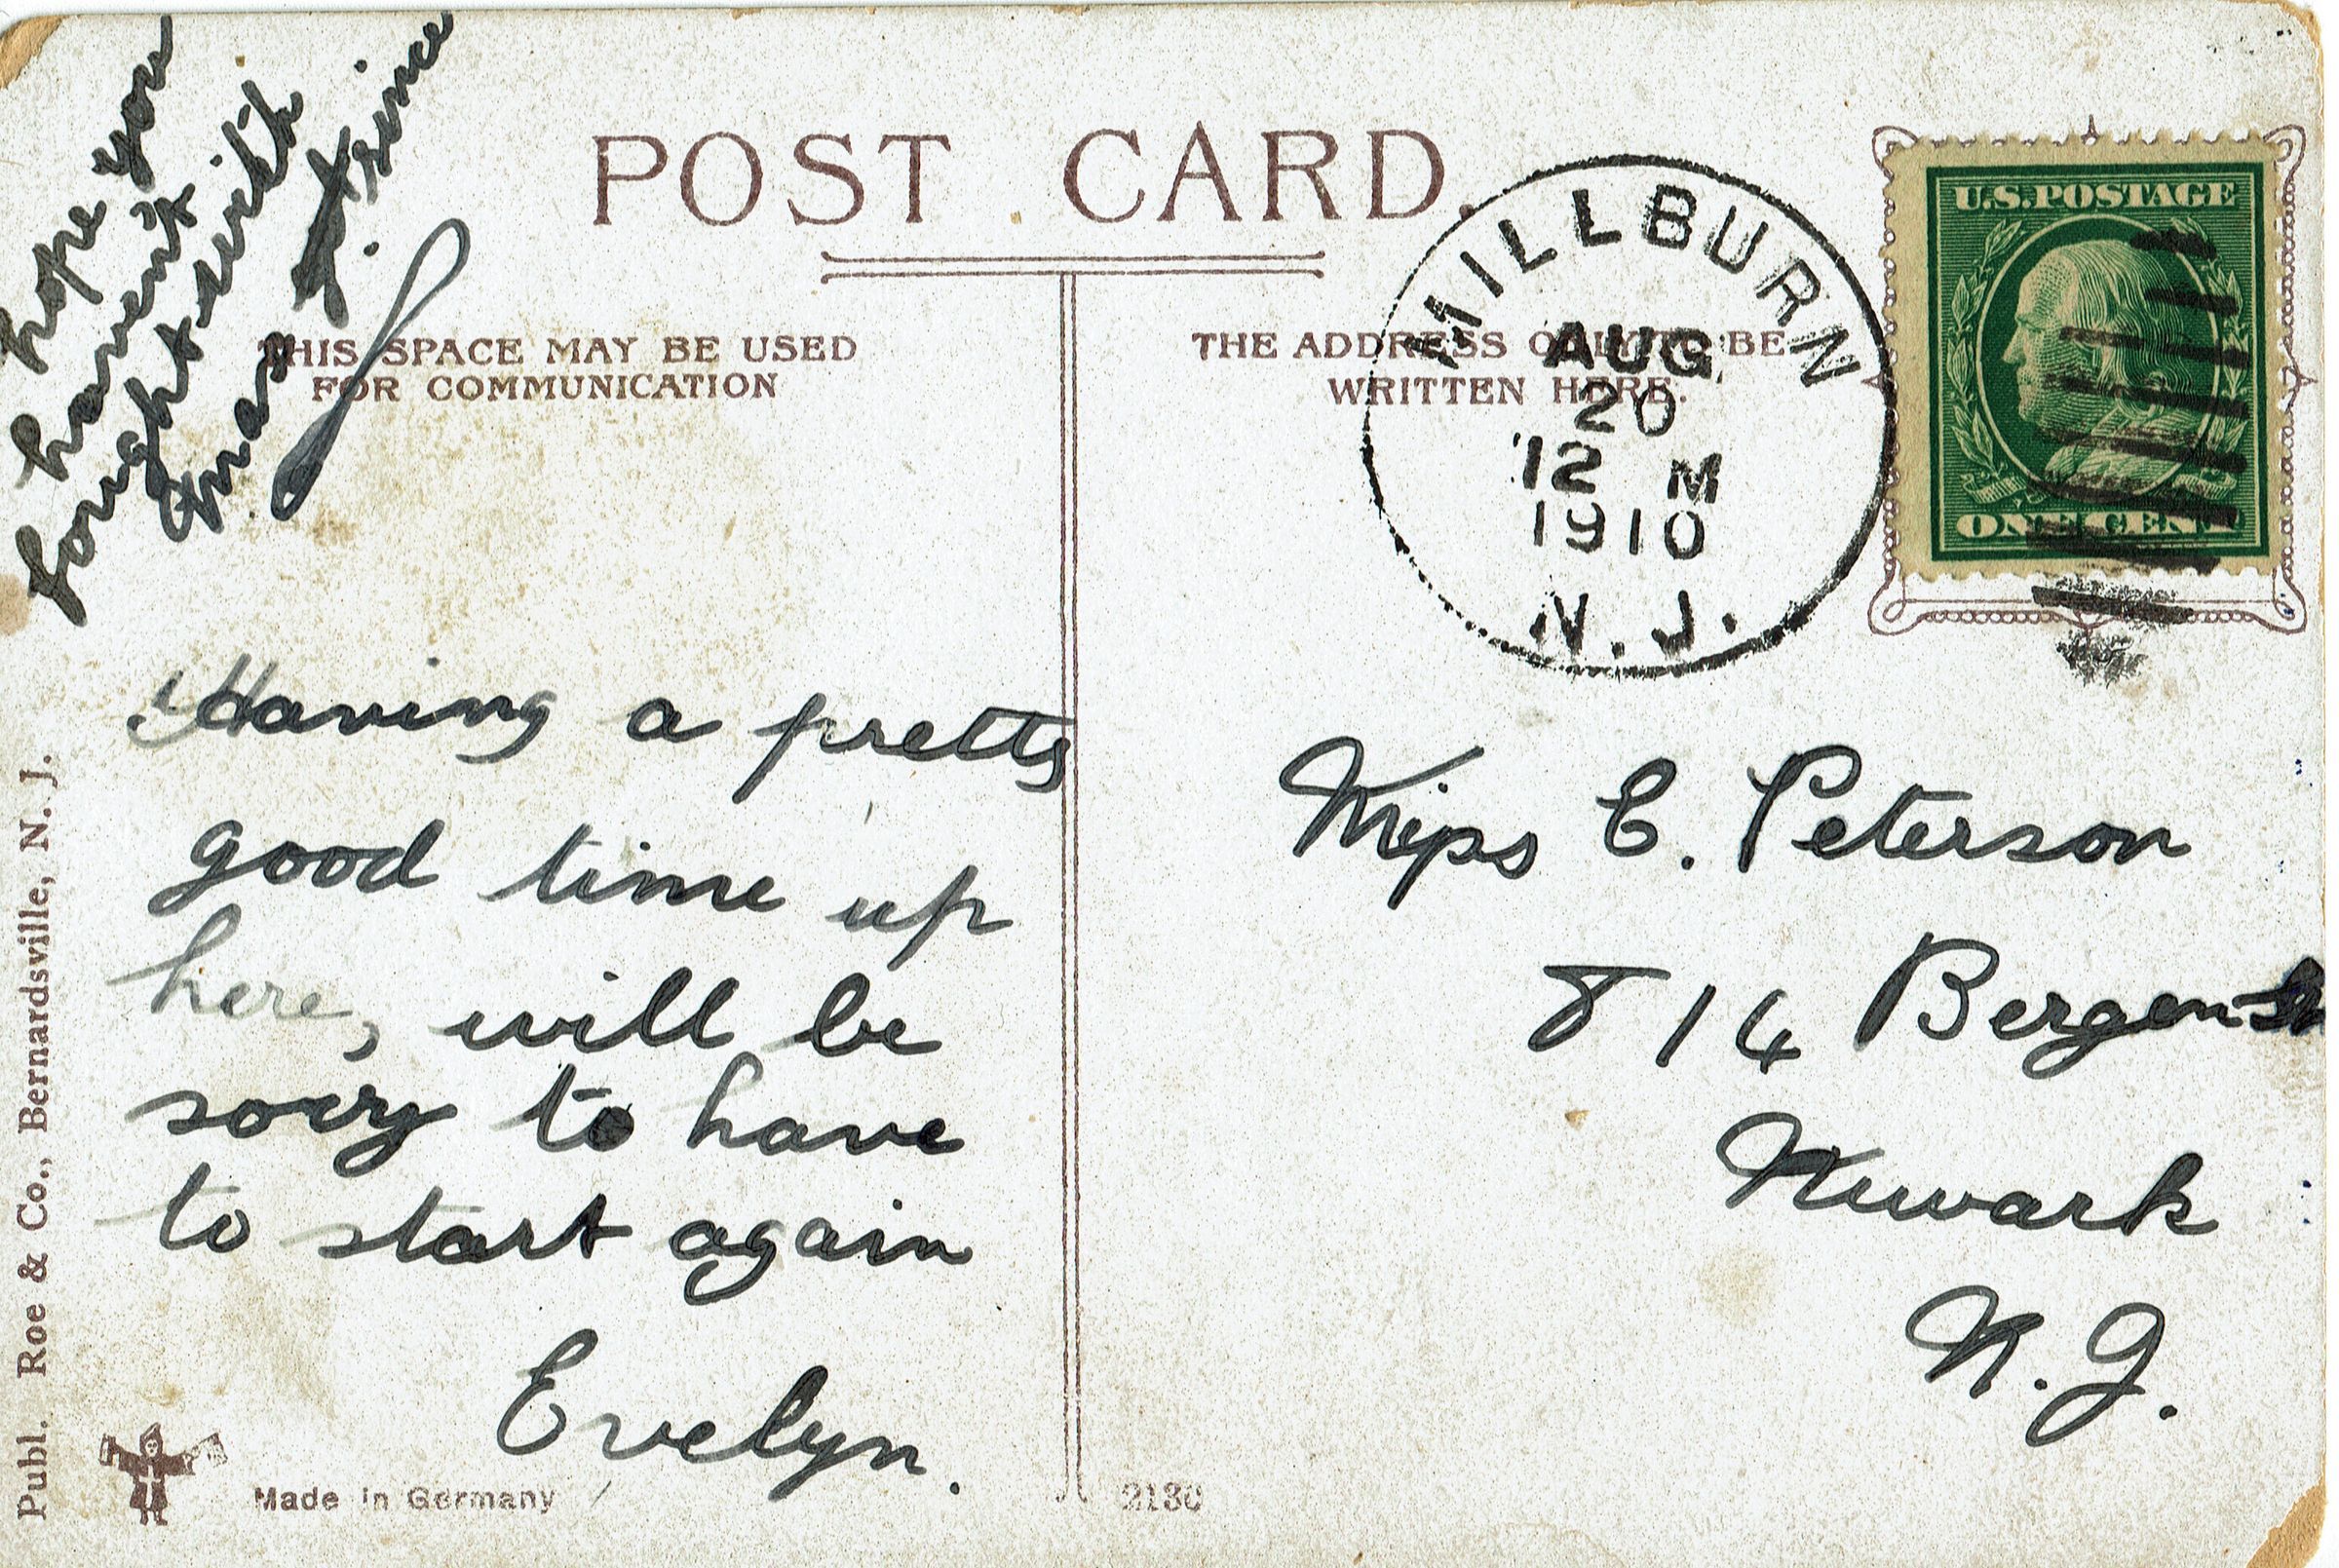 POST CARD.
THIS SPACE MAY BE USED
FOR COMMUNICATION
THE ADDRESS ONLY TO BE
WRITTEN HERE.
MILLBURN
AUG
20
12 M
1910
N.J.
U.S.POSTAGE
ONE CENT
hope you
haven't
fought with
Gran since
Having a pretty
good time up
here, will be
sorry to have
to start again
Evelyn.
Miss E. Peterson
814 Bergen St
Newark
N.J.
Publ. Roe & Co., Bernardsville, N. J.
Made in Germany